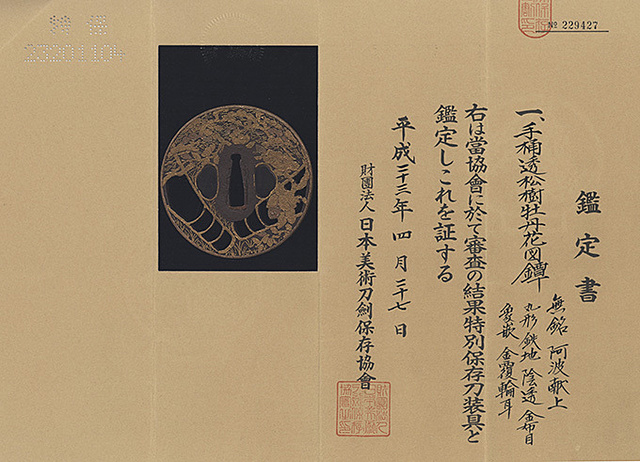 No 229427
鑑定書
一、手桶透松樹牡丹花図鐔
無銘 阿波献上
丸形 鉄地 陰透 金布目
象嵌 金覆輪耳
右は當協會に於て審査の結果特別保存刀装具と
鑑定しこれを証する
平成二十三年四月二十七日
財團法人日本美術刀劍保存協會
23201104